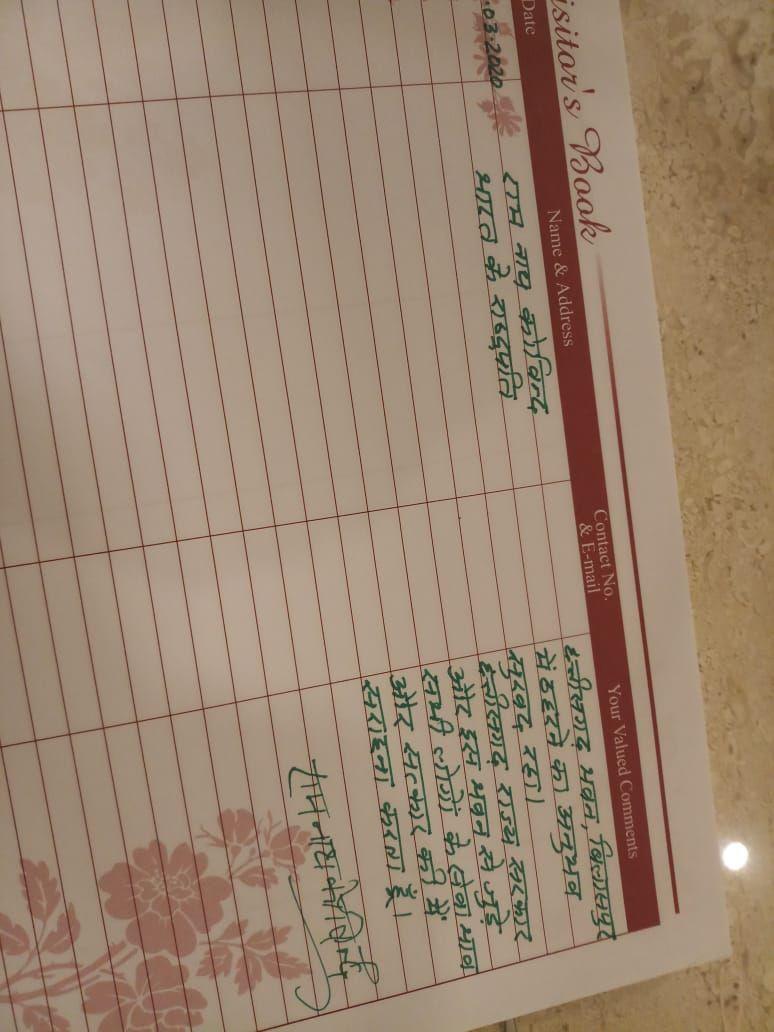 Visitor's Book
Date
Name & Address
Contact No.
& E-mail
Your Valued Comments
.03.2020
राम नाथ कोविन्द
भारत के राष्ट्रपति
छत्तीसगढ़ भवन, बिलासपुर
में ठहरने का अनुभव
सुखद रहा।
छत्तीसगढ़ राज्य सरकार
और इस भवन से जुड़े
सभी लोगों के सेवा भाव
और सत्कार की मैं
सराहना करता हूँ।
राम नाथ कोविन्द